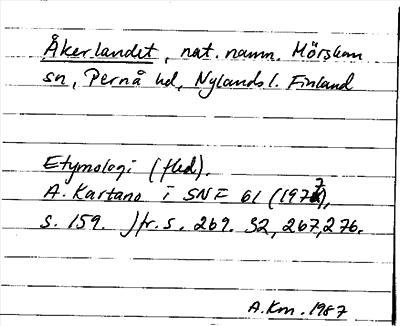 Åkerlandet, nat. namn. Mörskom
sn, Pernå hd, Nylands l. Finland
Etymologi (fled).
A. Kartano i SNF 61 (1977),
s. 159. Jfr. s. 269. 32, 267, 276.
A.Km. 1987